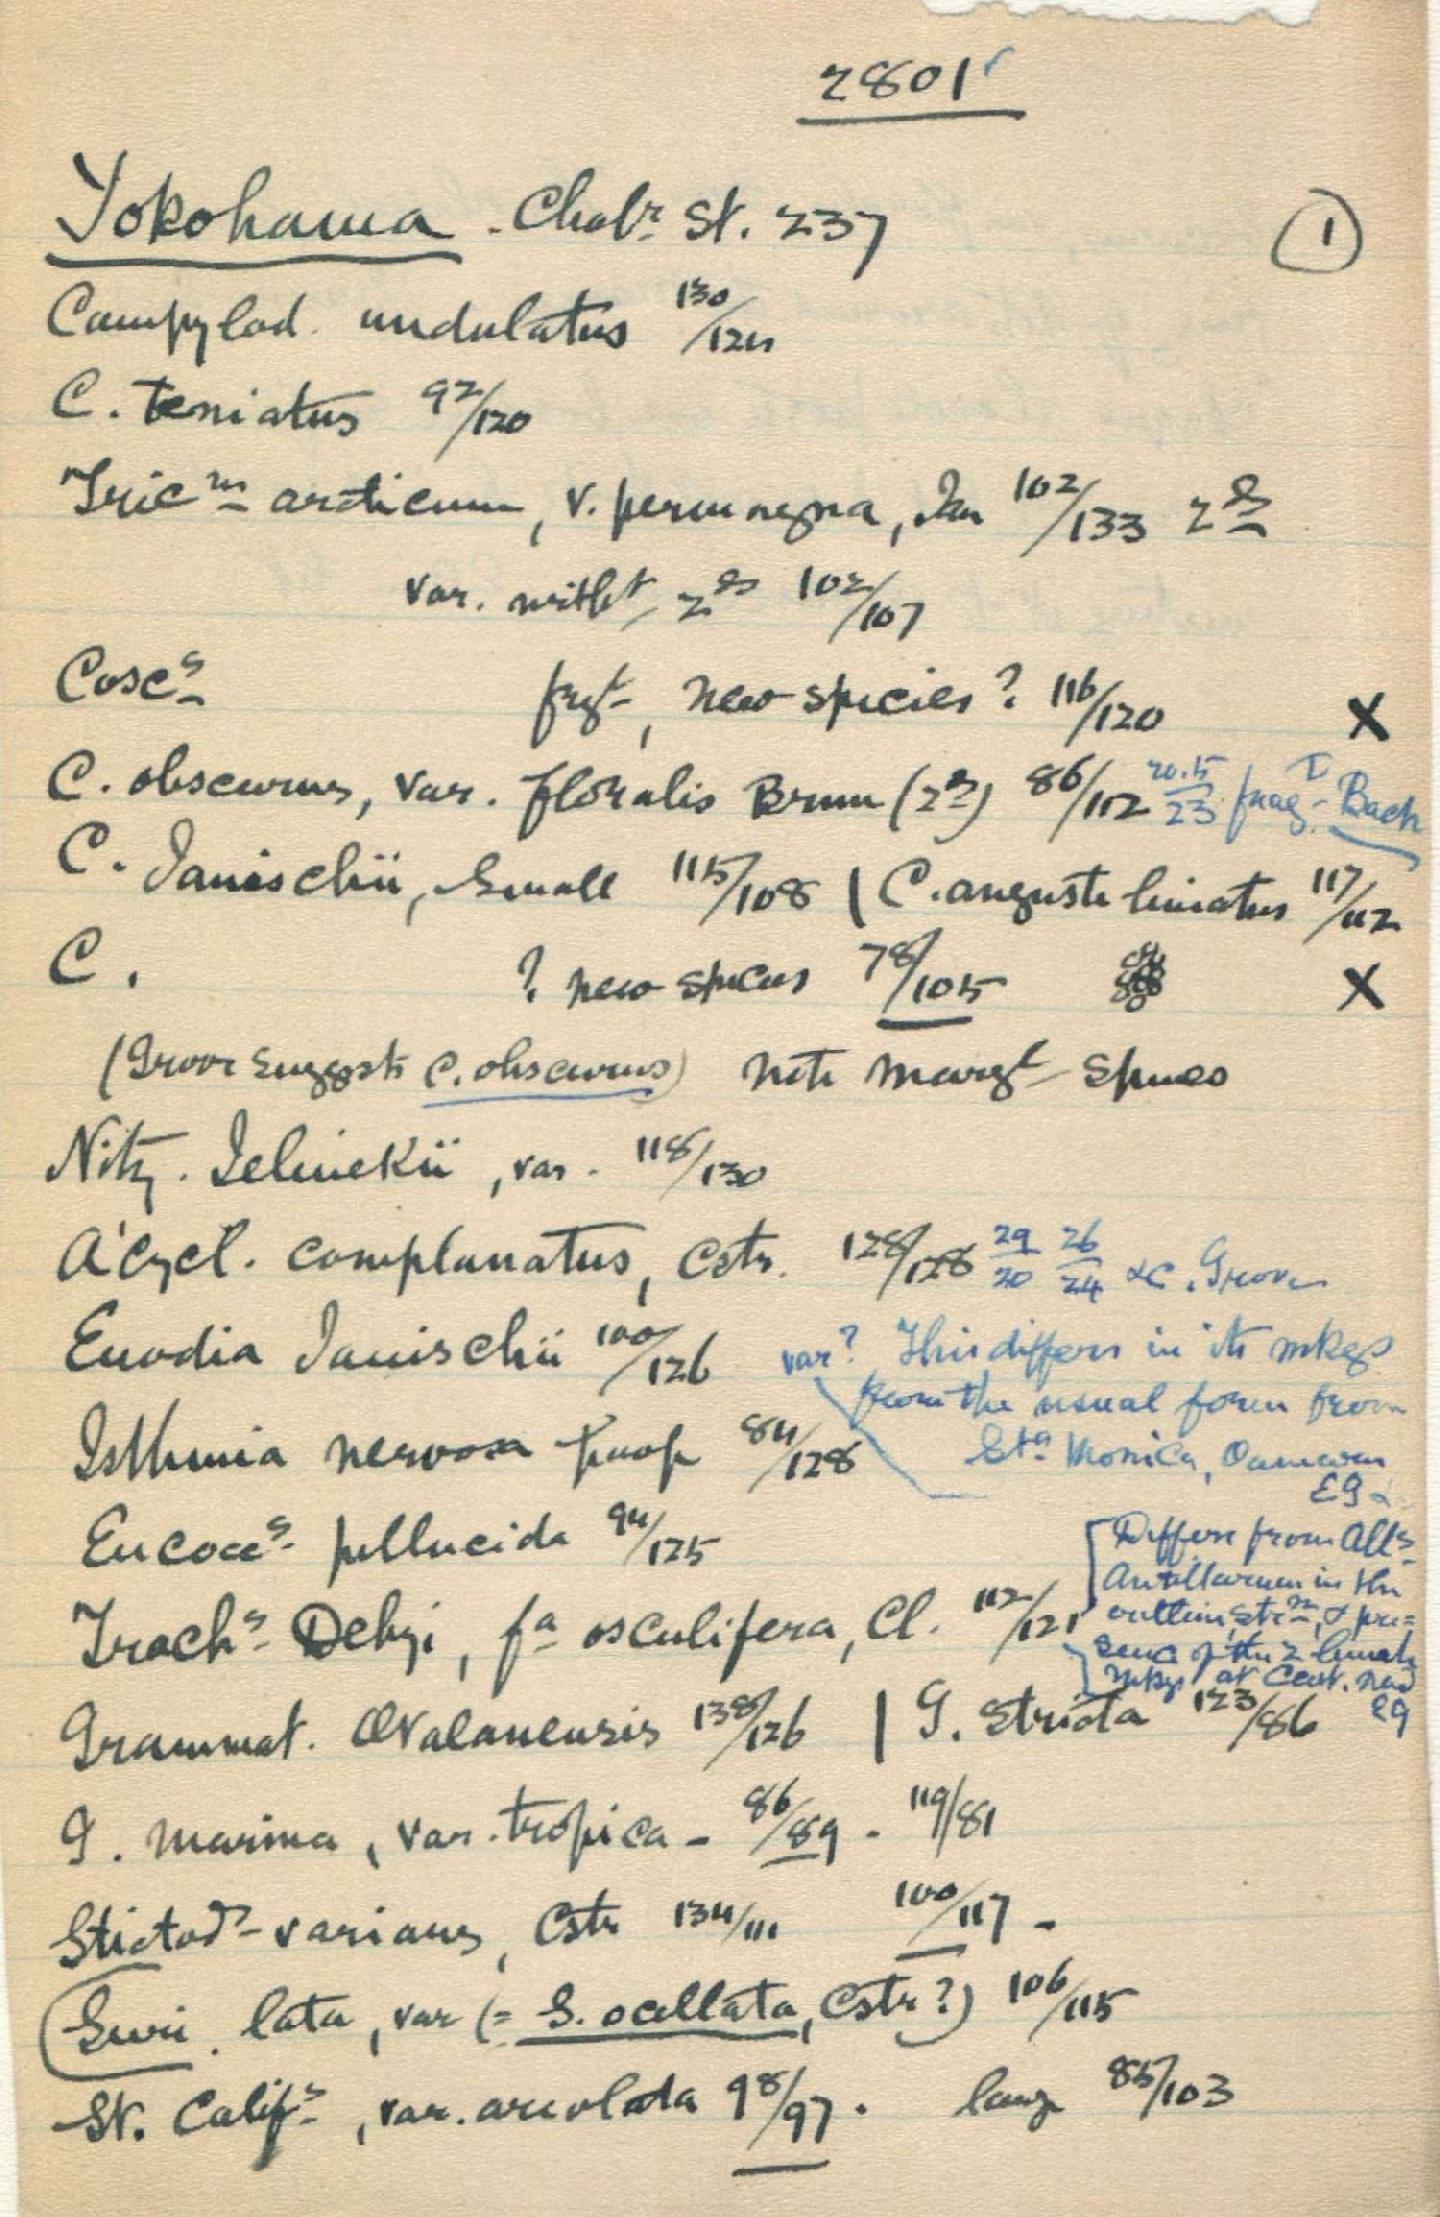 2801
Yokohama - Chalr St. 237
1
Campylod. undulatus 130/124
C. teniatus 92/120
Tricm arcticum, v. permagna, Jan 102/133 2ds
var. witht 2ds 102/107
Coscs frgt, new species? 116/120 X
C. obscurus, var. floralis Brun (2ds) 86/112 20.15/23 frag. Bach
C. Janischii, Small 115/108 | C. anguste lineatus 117/112
C. ? new species 78/105 X
(Grove suggests C. obscurus) note margl spines
Nitz. Jelineckii, var. 118/130
A'cycl. complanatus, Cstr. 128/128 29/20 26/24 &c. Grove
Euodia Janischii 100/126 var? This differs in its mkgs
from the usual form from
Isthmia nervosa 84/128 Sta Monica, Oamaru
EG
Eucoccs pellucida 94/125 Differs from Alls
Antillarum in the
Trochs Debyi, fa osculifera, Cl. 112/121 outline, strn, & pre=
sence of the 2 lunate
mkgs at Cent. nod
EG
Grammat. Ovalauensis 138/126 | G. stricta 123/86
G. marina, var. tropica - 86/89 - 119/81
Stictods varians, Cstr 134/111 100/117 -
Suri. lata, var (= S. ocellata, Cstr?) 106/115
St. Califs, var. areolata 98/97. large 85/103